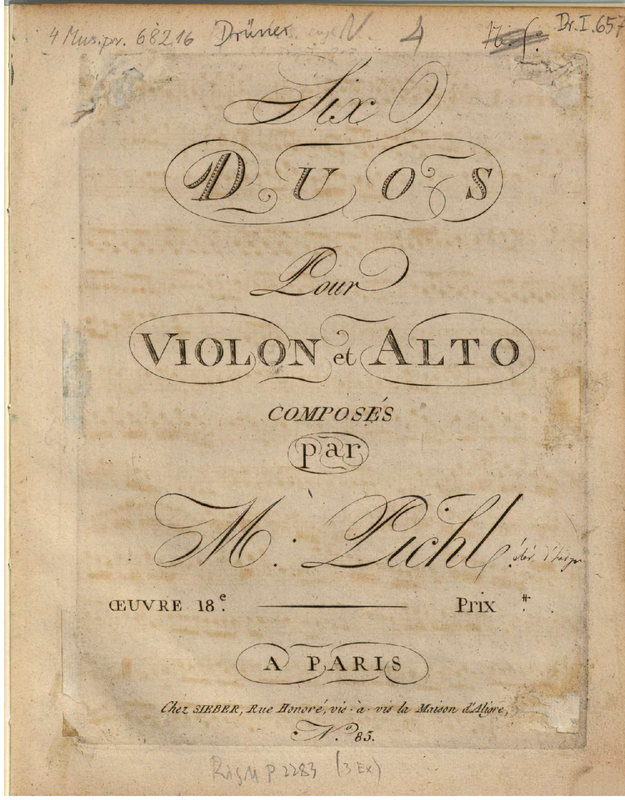 4 Mus.pr. 68216 Drüner 4 Dr.I.657
Six
DUOS
Pour
VIOLON et ALTO
COMPOSÉS
par
M. Pichl.
ŒUVRE 18e. Prix #.
A PARIS
Chez SIEBER, Rue Honoré, vis-à-vis la Maison d'Aligre,
N.o 85.
RISM P 2283 (3 Ex)